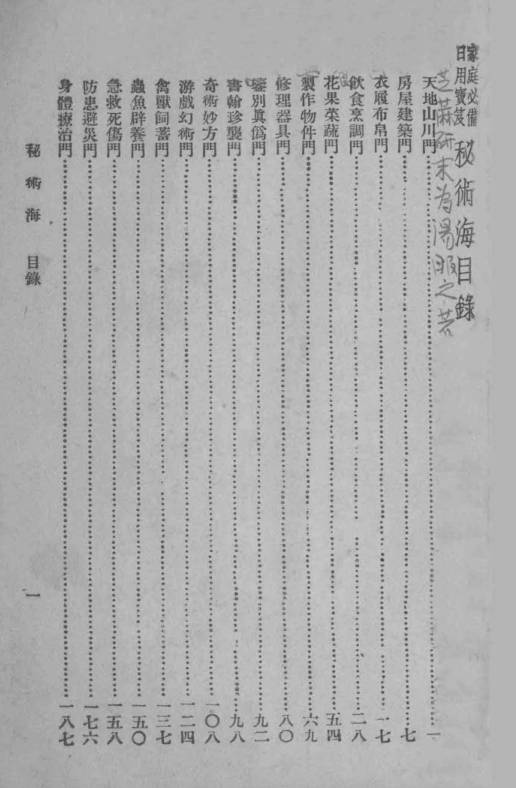 家庭必備
日用寶笈
秘術海目錄
芝麻研末為湯服之
天地山川門 一
房屋建築門 七
衣履布帛門 一七
飲食烹調門 二八
花果菜蔬門 五四
製作物件門 六九
修理器具門 八〇
鑒別眞僞門 九二
書翰珍襲門 九八
奇術妙方門 一〇八
游戲幻術門 一二四
禽獸飼蓄門 一三七
蟲魚辟養門 一五〇
急救死傷門 一五八
防患避災門 一七六
身體療治門 一八七
秘術海 目錄 一